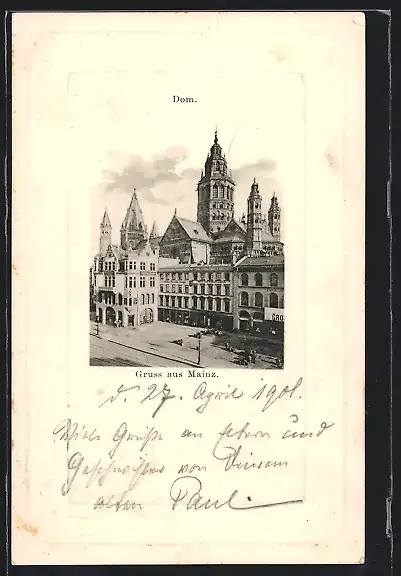 Dom.
GRO
Gruss aus Mainz.
d. 27. April 1901.
Viele Grüße an Eltern und
Geschwister von Deinem
alten Paul.